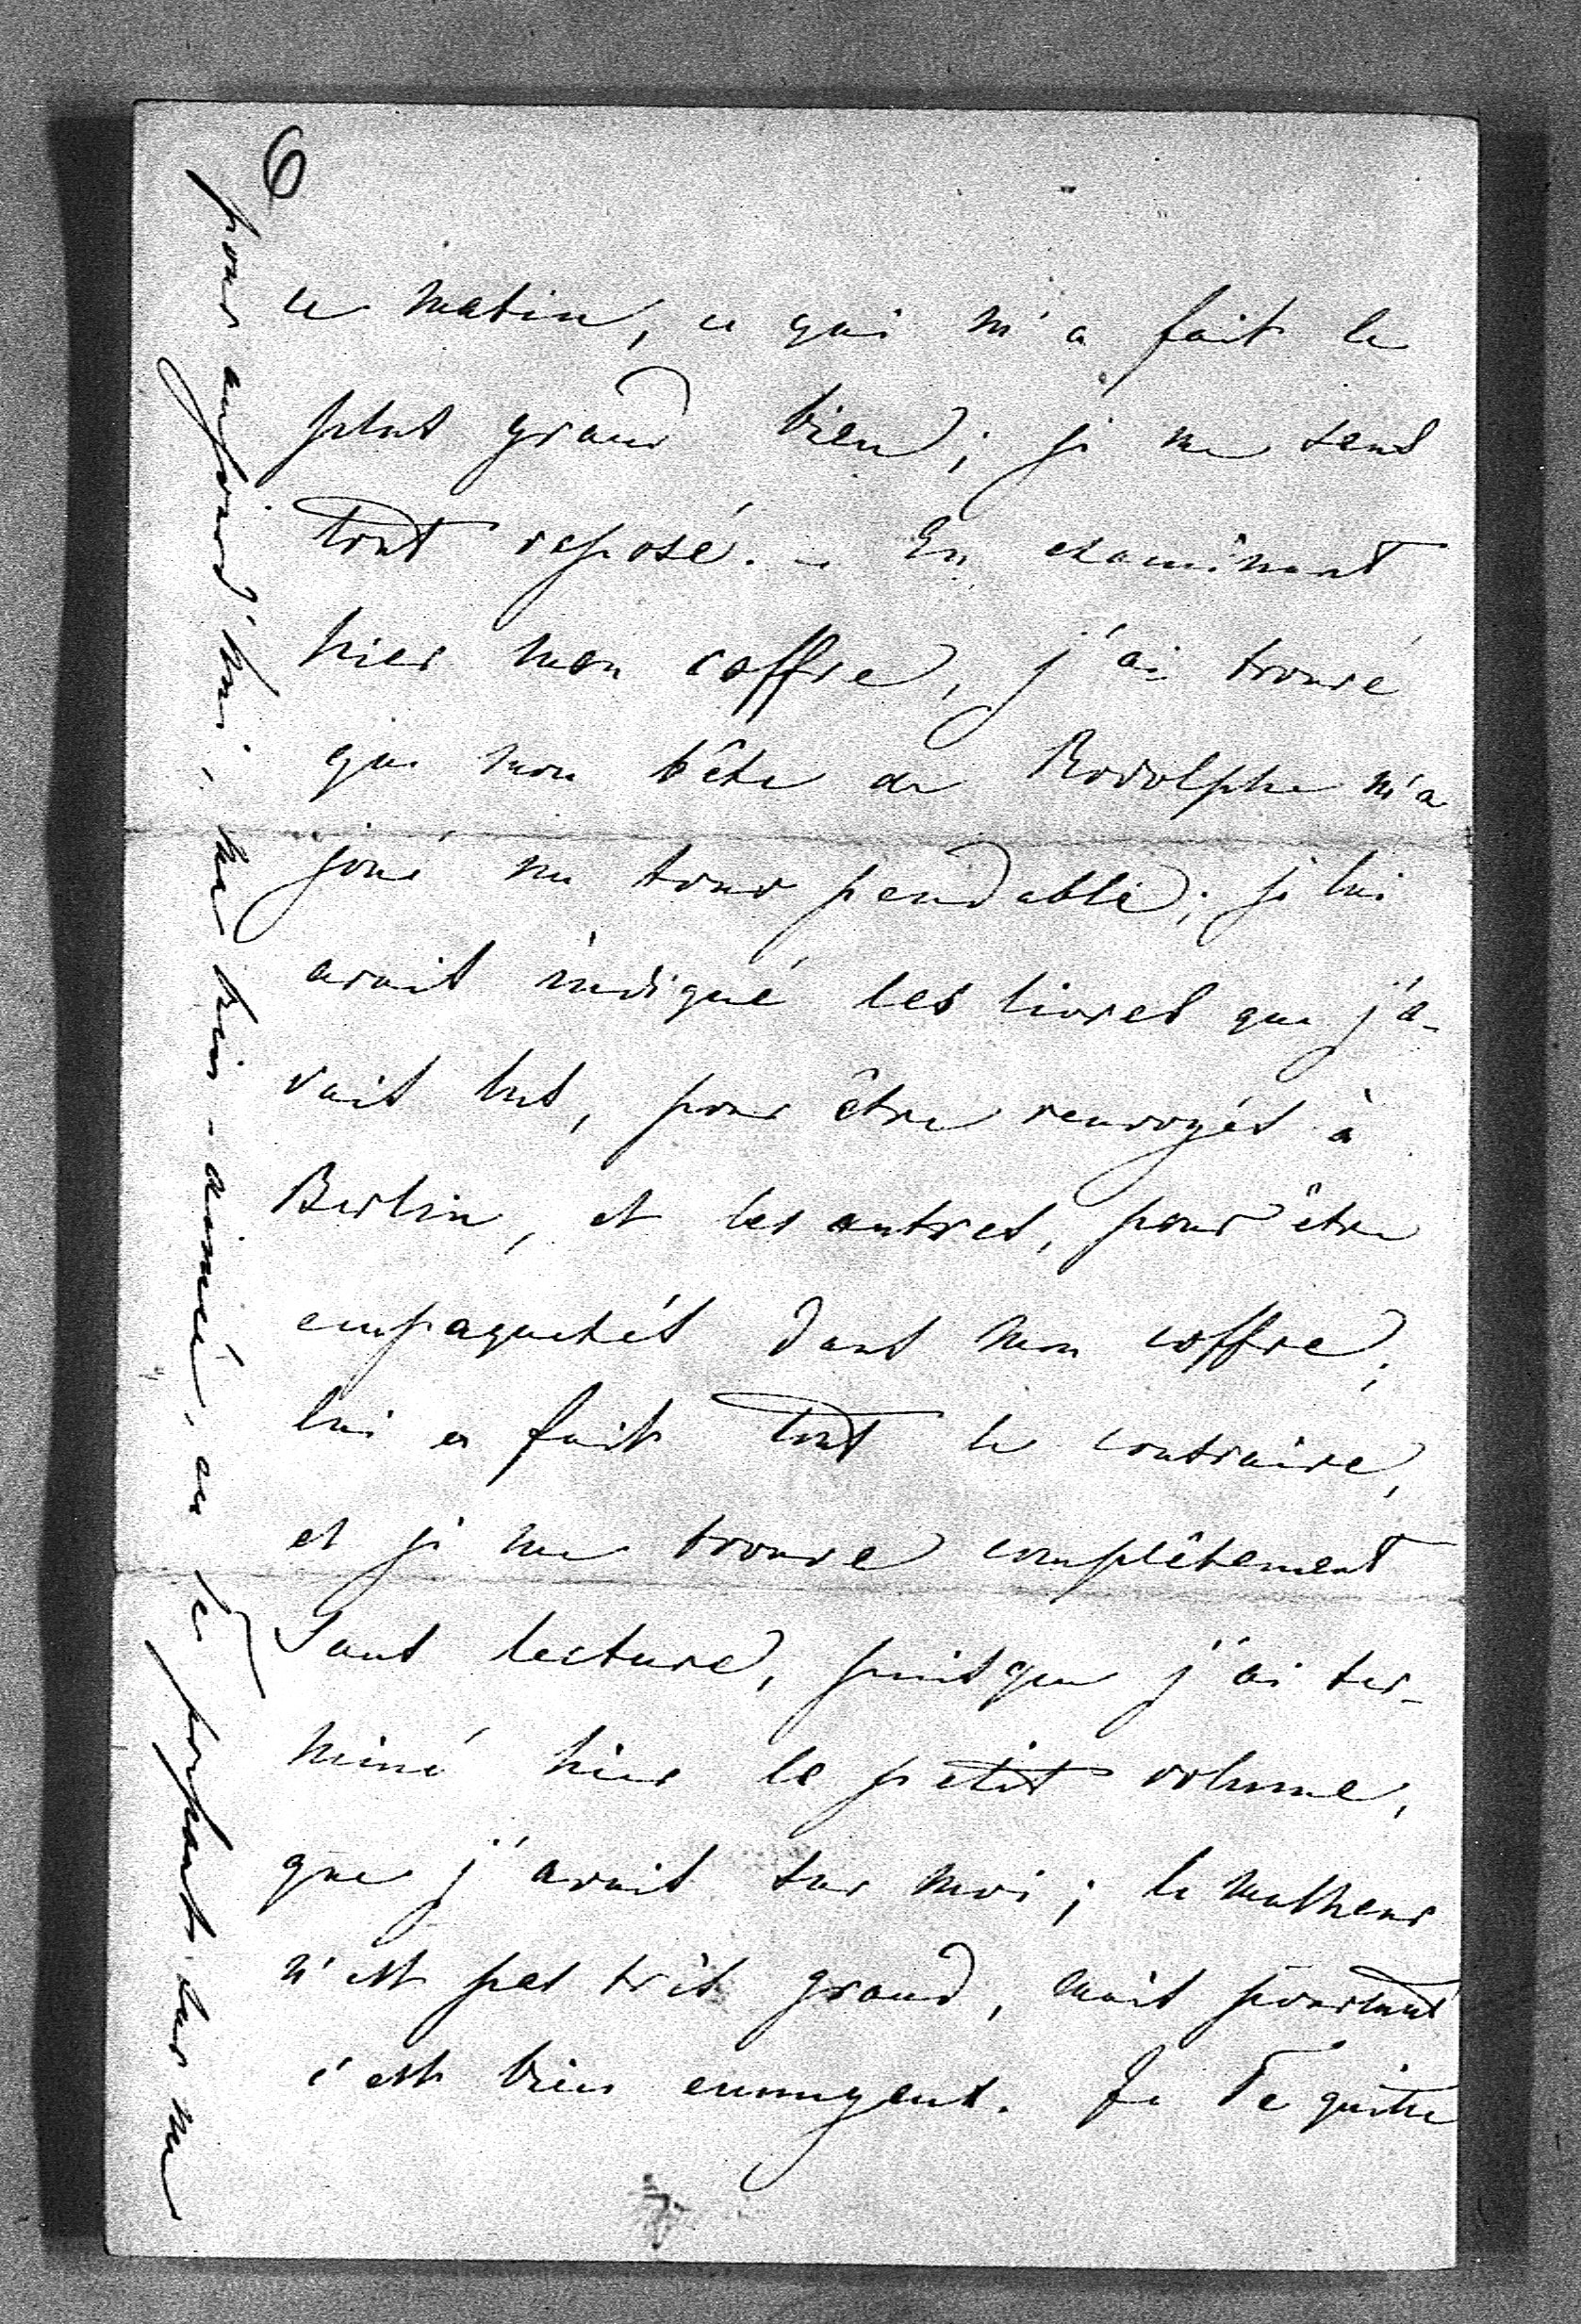 6
ce matin, ce qui m'a fait le
plus grand bien; je me sens
tout reposé. – En examinant
hier mon coffre, j'ai trouvé
que mon bête de Rodolphe m'a
joué un tour pendable; je lui
avais indiqué les livres que j'a-
vais lus, pour être renvoyés à
Berlin, et les autres, pour être
empaquetés dans mon coffre;
lui a fait tout le contraire,
et je me trouve complêtement
sans lecture, puisque j'ai ter-
miné hier le petit volume,
que j'avais sur moi; le malheur
n'est pas très grand, mais pourtant
c'est bien ennuyeux. Je Te quitte
pour aujourd'hui, ma bien-aimée, en me